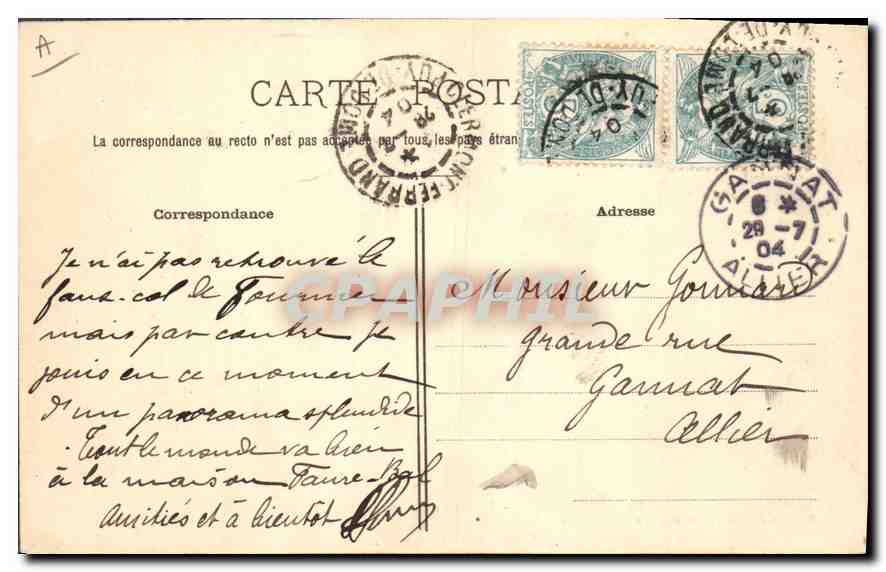 A
CARTE POSTA
La correspondance au recto n'est pas acceptée par tous les pays étran
CLERMONT-FERRAND PUY-DE-DOME
28 -7
04
PUY-DE-DOM
04
GANNAT
6 *
29 -7
04
ALLIER
Correspondance
Adresse
Je n'ai pas retrouvé le
faux-col de Fournier
mais par contre je
jouis en ce moment
d'un panorama splendide
Tout le monde va bien
à la maison Faure-Bal
Amitiés et à bientôt
Monsieur
grande rue
Gannat
Allier
CPAPHIL